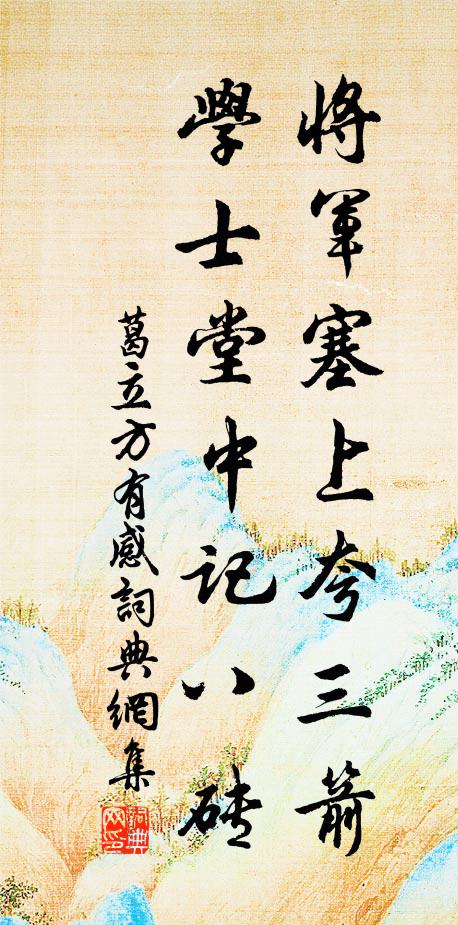 將軍塞上夸三箭
學士堂中記八磚
葛立方有感詞典網集